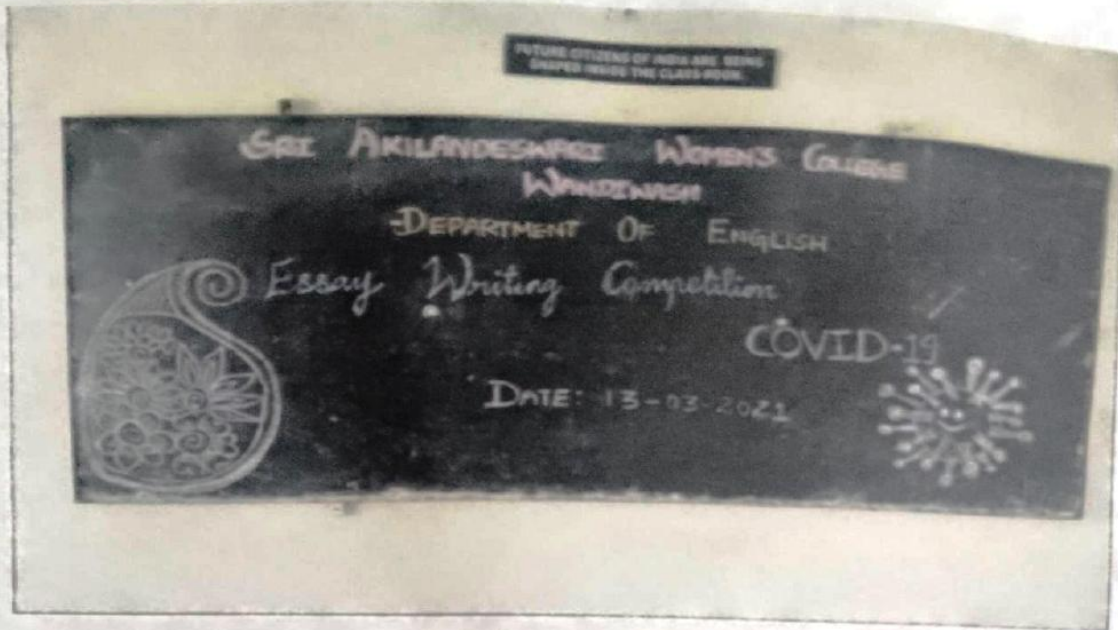 FUTURE CITIZENS OF INDIA ARE BEING
SHAPED INSIDE THE CLASS-ROOM.
SRI AKILANDESWARI WOMEN'S COLLEGE
WANDIWASH
DEPARTMENT OF ENGLISH
Essay Writing Competition
COVID-19
DATE: 13-03-2021